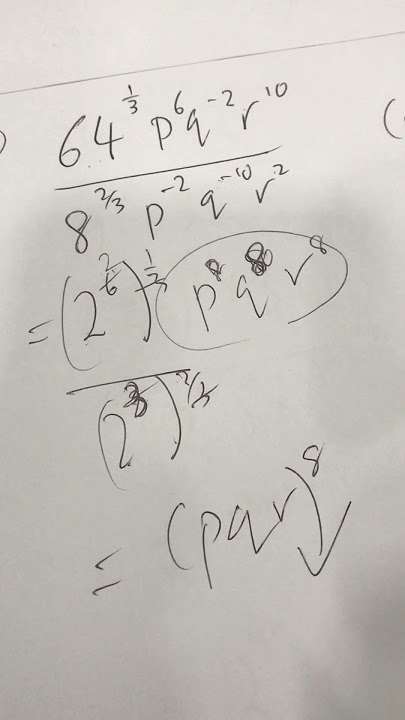 )
64^(1/3) p^6 q^-2 r^10 (
8^(2/3) p^-2 q^-10 r^2
= (2^6)^(1/3) p^8 q^8 r^8
(2^3)^(2/3)
= (pqr)^8